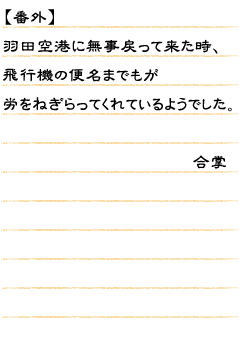 【番外】
羽田空港に無事戻って来た時、
飛行機の便名までもが
労をねぎらってくれているようでした。
合掌